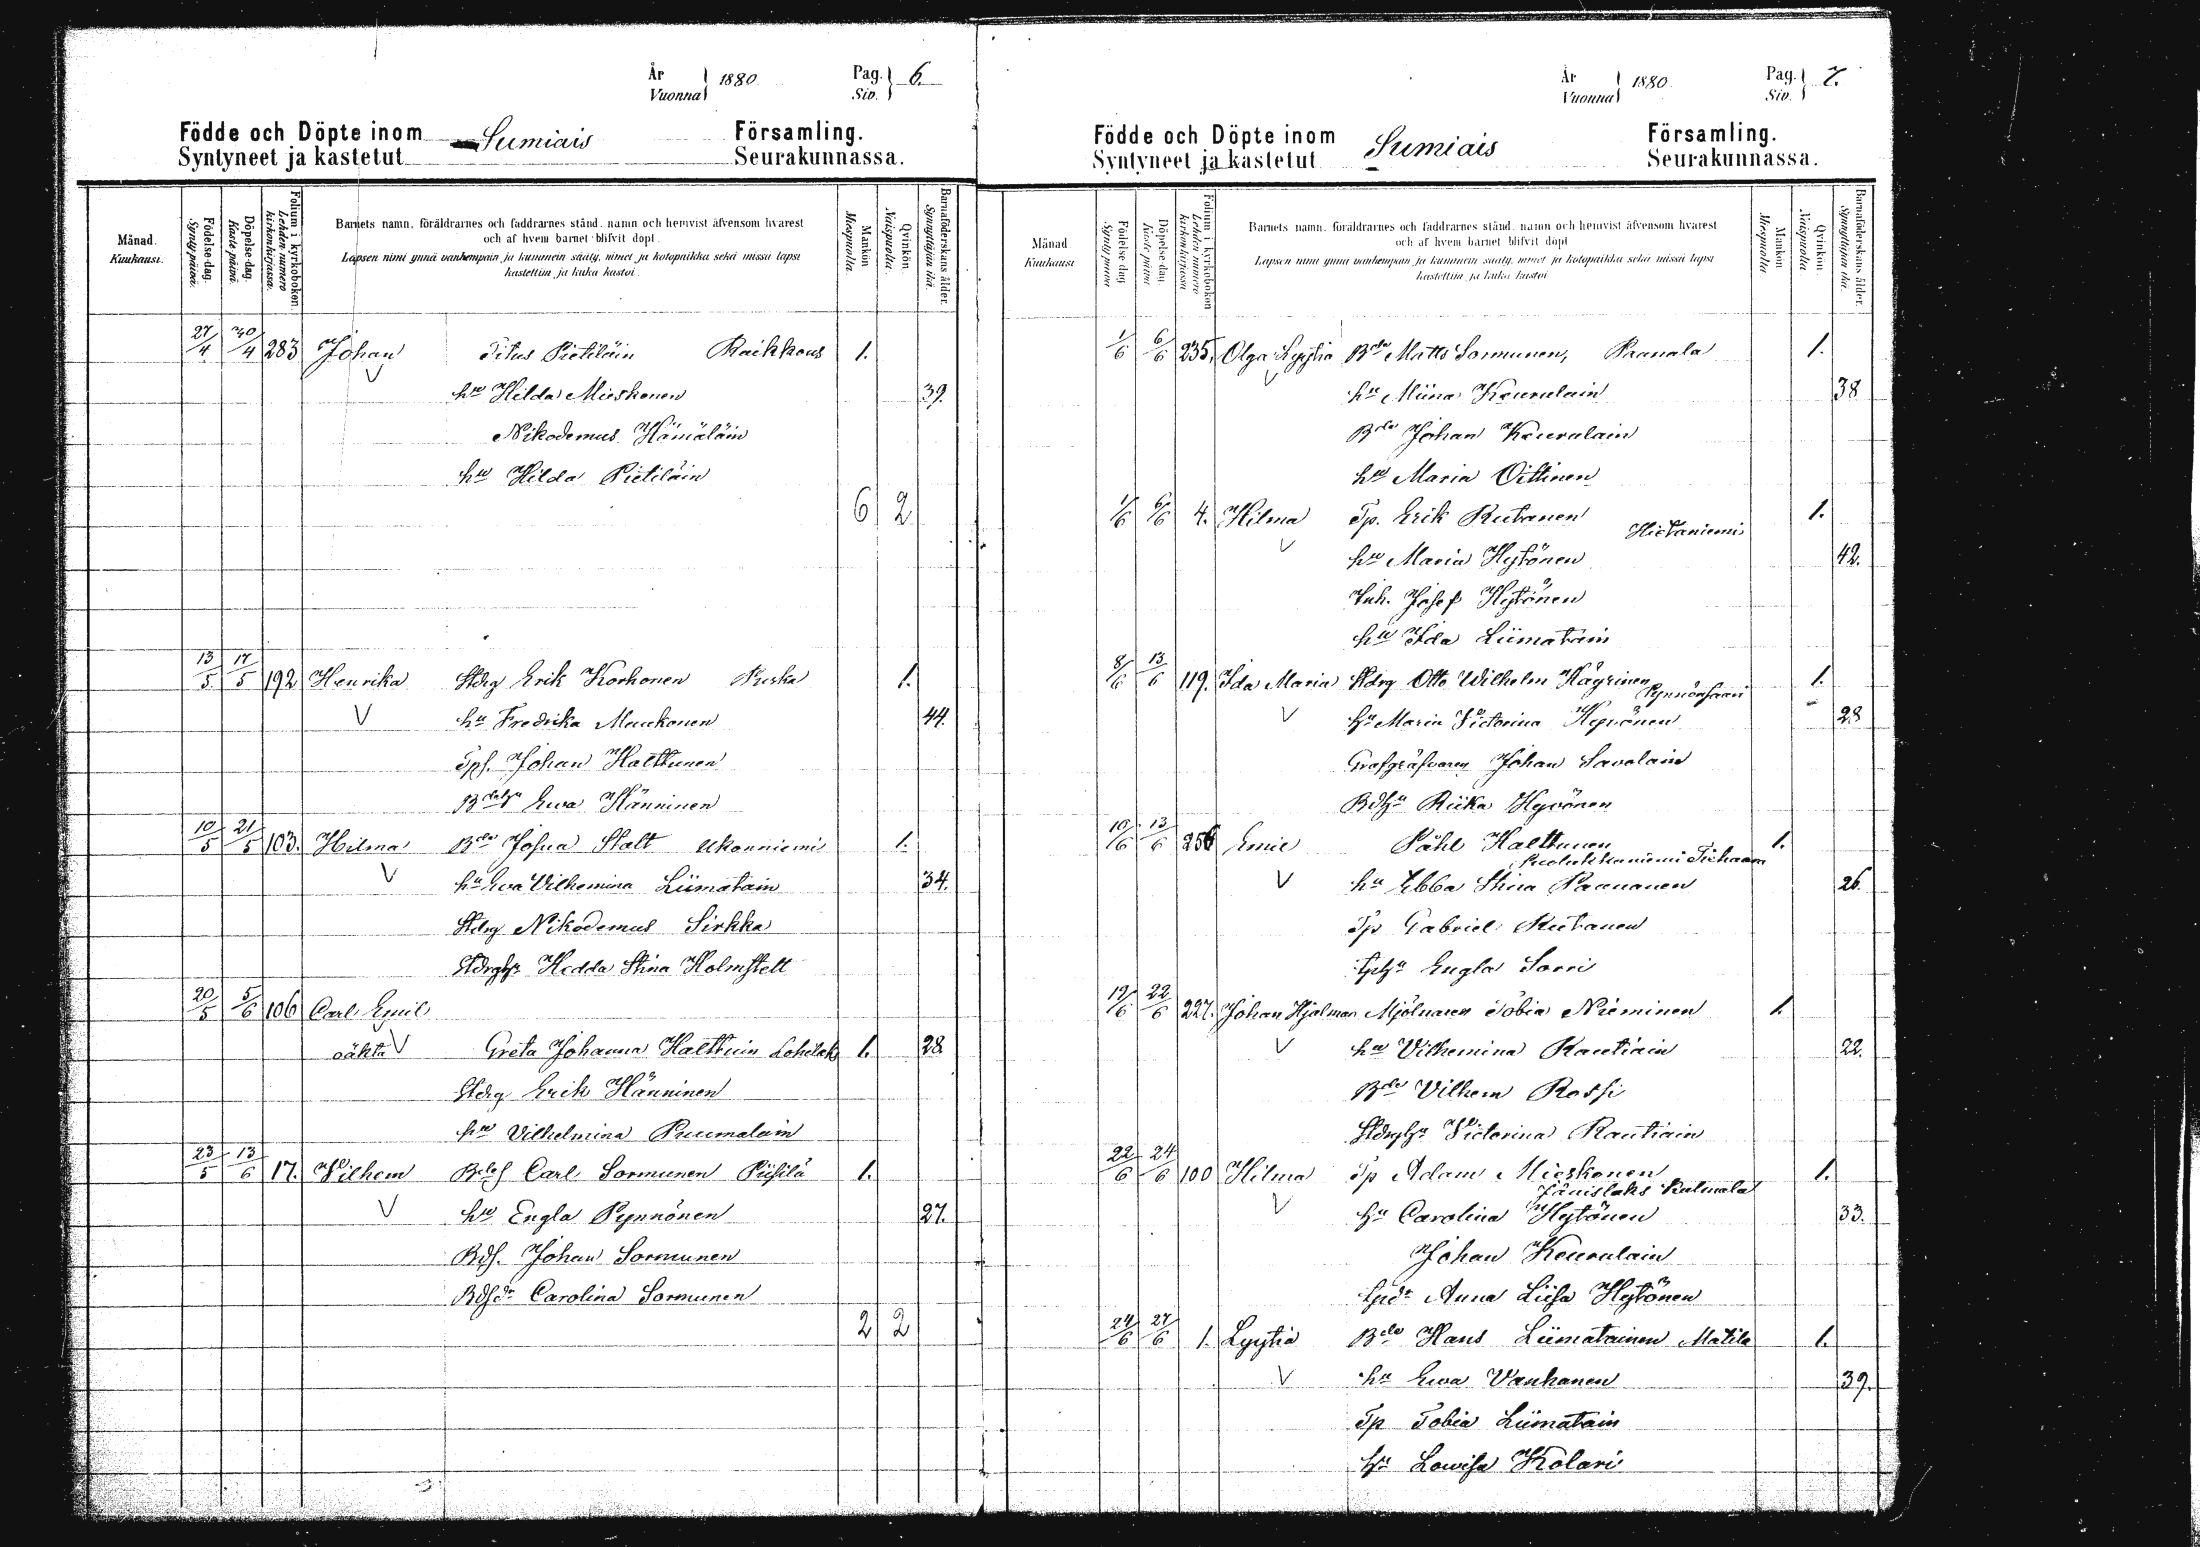 År
Vuonna } 1880
Pag.
Siv. } 6.
Födde och Döpte inom Sumiais Församling.
Syntyneet ja kastetut Seurakunnassa.
Månad. Kuukausi.
Födelse-dag. Syntypäivä.
Döpelse-dag. Kastepäivä.
Folium i kyrkoboken. Lehden numero kirkonkirjassa.
Barnets namn, föräldrarnes och faddrarnes stånd, namn och hemvist äfvensom hvarest
och af hvem barnet blifvit döpt.
Lapsen nimi ynnä vanhempain ja kummein sääty, nimet ja kotopaikka sekä missä lapsi
kastettiin ja kuka kastoi.
Mankön. Miespuolia.
Qvinkön. Naispuolia.
Barnaföderskans ålder. Synnyttäjän ikä.
27/4 30/4 283 Johan Titus Pietiläin Raikkaus 1.
hu Hilda Mieskonen 39.
Nikodemus Hämäläin
hu Hilda Pietiläin
6 2
13/5 17/5 192 Henrika Stdrg Erik Korhonen Ruska 1.
hu Fredrika Maukonen 44.
Tps. Johan Halttunen
Bdehu Ewa Hänninen
10/5 21/5 103. Hilma Bde Josua Stalt Ukonniemi 1.
hu Eva Vilhemina Liimatain 34.
Stdrg Nikodemus Sirkka
Stdrghu Hedda Stina Holmstelt
20/5 5/6 106 Carl Emil
oäkta Greta Johanna Halttuin Lohilaks 1. 28.
Stdrg Erik Hänninen
hu Vilhelmina Puumalain
23/5 13/6 17. Vilhem Bdes Carl Sormunen Piisilä 1.
hu Engla Pynnönen 27.
Bds. Johan Sormunen
Bdsdr Carolina Sormunen
2 2
År
Vuonna } 1880
Pag.
Siv. } 7.
Födde och Döpte inom Sumiais Församling.
Syntyneet ja kastetut Seurakunnassa.
Månad Kuukausi
Födelse dag Syntypäivä
Döpelse dag. Kastepäivä
Folium i kyrkoboken Lehden numero kirkonkirjassa
Barnets namn, föräldrarnes och faddrarnes stånd, namn och hemvist äfvensom hvarest
och af hvem barnet blifvit döpt
Lapsen nimi ynnä vanhempain ja kummein sääty, nimet ja kotopaikka sekä missä lapsi
kastettiin ja kuka kastoi
Mankön Miespuolia
Qvinkön Naispuolia
Barnaföderskans ålder. Synnyttäjän ikä.
1/6 6/6 235. Olga Lyytia Bde Matts Sormunen, Paanala 1.
hu Miina Kauralain 38
Bde Johan Kauralain
hu Maria Oittinen
1/6 6/6 4. Hilma Tp. Erik Rutanen 1.
Hietaniemi
hu Maria Hytönen 42.
Inh. Josef Hytönen
hu Ida Liimatain
8/6 13/6 119. Ida Maria Stdrg Otto Wilhelm Käyrinen 1.
Pynnönsaari
hu Maria Victorina Hyvönen 28
Grafgräfvaren Johan Savolain
Bdhu Riika Hyvönen
10/6 13/6 256 Emil Påhl Halttunen 1.
hu Ebba Stina Paananen 26.
Tp Gabriel Rutanen
tphu Engla Sorri
19/6 22/6 227. Johan Hjalmar Mjölnaren Tobia Nieminen 1.
hu Vilhemina Rautiain 22.
Bde Vilhem Rossi
Stdrghu Victorina Rautiain
22/6 24/6 100 Hilma Tp Adam Mieskonen 1.
Jänislaks Kulmala
hu Carolina Hytönen 33.
Johan Kauralain
tpdr Anna Liisa Hytönen
24/6 27/6 1. Lyytia Bde Hans Liimatainen Matila 1.
hu Ewa Vanhanen 39.
Tp Tobia Liimatain
hu Lowisa Kolari